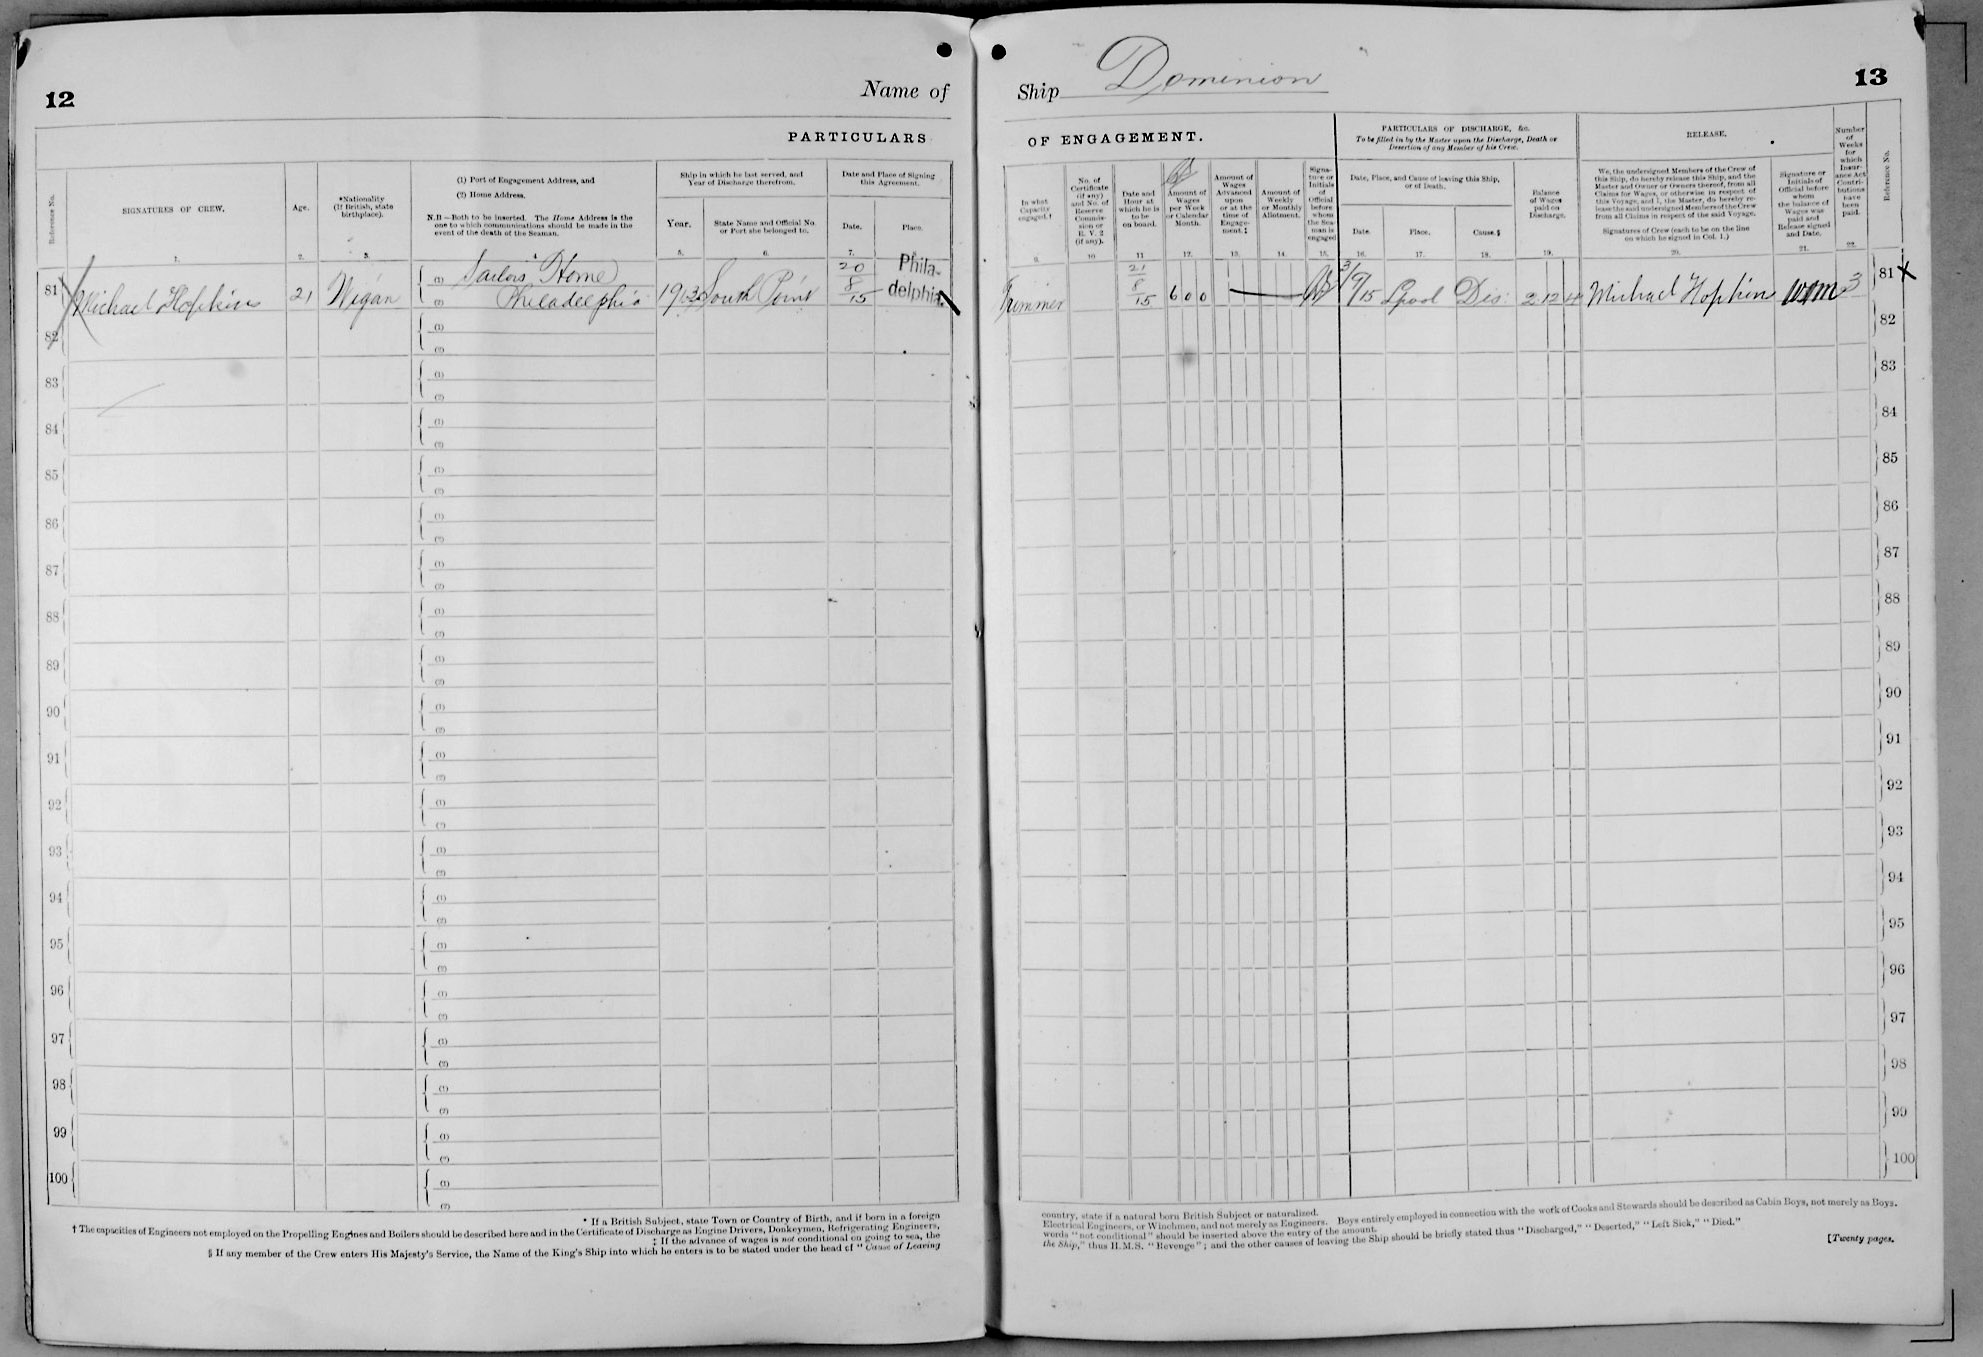 12
Name of
PARTICULARS
Reference No.
SIGNATURES OF CREW.
Age.
*Nationality
(If British, state
birthplace).
(1) Port of Engagement Address, and
(2) Home Address.
N.B.—Both to be inserted. The Home Address is the
one to which communications should be made in the
event of the death of the Seaman.
Ship in which he last served, and
Year of Discharge therefrom.
Year.
State Name and Official No.
or Port she belonged to.
Date and Place of Signing
this Agreement.
Date.
Place.
1. 2. 3. 5. 6. 7.
81
Michael Hopkins
21
Wigan
(1) Sailors Home
(2) Philadelphia
South Point
20
8
15
Phila-
delphia
82 (1)
(2)
83 (1)
(2)
84 (1)
(2)
85 (1)
(2)
86 (1)
(2)
87 (1)
(2)
88 (1)
(2)
89 (1)
(2)
90 (1)
(2)
91 (1)
(2)
92 (1)
(2)
93 (1)
(2)
94 (1)
(2)
95 (1)
(2)
96 (1)
(2)
97 (1)
(2)
98 (1)
(2)
99 (1)
(2)
100 (1)
(2)
* If a British Subject, state Town or Country of Birth, and if born in a foreign
† The capacities of Engineers not employed on the Propelling Engines and Boilers should be described here and in the Certificate of Discharge as Engine Drivers, Donkeymen, Refrigerating Engineers,
‡ If the advance of wages is not conditional on going to sea, the
§ If any member of the Crew enters His Majesty's Service, the Name of the King's Ship into which he enters is to be stated under the head of "Cause of Leaving
Ship Dominion
13
OF ENGAGEMENT.
PARTICULARS OF DISCHARGE, &c.
To be filled in by the Master upon the Discharge, Death or
Desertion of any Member of his Crew.
RELEASE.
Number
of
Weeks
for
which
Insur-
ance Act
Contri-
butions
have
been
paid.
Reference No.
In what
Capacity
engaged.†
No. of
Certificate
(if any)
and No. of
Reserve
Commis-
sion or
R. V. 2
(if any).
Date and
Hour at
which he is
to be
on board.
Amount of
Wages
per Week
or Calendar
Month.
Amount of
Wages
Advanced
upon
or at the
time of
Engage-
ment.‡
Amount of
Weekly
or Monthly
Allotment.
Signa-
ture or
Initials
of
Official
before
whom
the Sea-
man is
engaged
Date, Place, and Cause of leaving this Ship,
or of Death.
Date.
Place.
Cause.§
Balance
of Wages
paid on
Discharge.
We, the undersigned Members of the Crew of
this Ship, do hereby release this Ship, and the
Master and Owner or Owners thereof, from all
Claims for Wages, or otherwise in respect of
this Voyage, and I, the Master, do hereby re-
lease the said undersigned Members of the Crew
from all Claims in respect of the said Voyage.
Signatures of Crew (each to be on the line
on which he signed in Col. 1.)
Signature or
Initials of
Official before
whom
the balance of
Wages was
paid and
Release signed
and Date.
9. 10 11 12. 13. 14. 15. 16. 17. 18. 19. 20. 21. 22
Trimmer
21
8
15
6 0 0
3/9/15
Lpool
Dis:
2 12 4
Michael Hopkins
3
81 X
82
83
84
85
86
87
88
89
90
91
92
93
94
95
96
97
98
99
100
country, state if a natural born British Subject or naturalized.
Electrical Engineers, or Winchmen, and not merely as Engineers. Boys entirely employed in connection with the work of Cooks and Stewards should be described as Cabin Boys, not merely as Boys.
words "not conditional" should be inserted above the entry of the amount.
the Ship," thus H.M.S. "Revenge"; and the other causes of leaving the Ship should be briefly stated thus "Discharged," "Deserted," "Left Sick," "Died."
[Twenty pages.